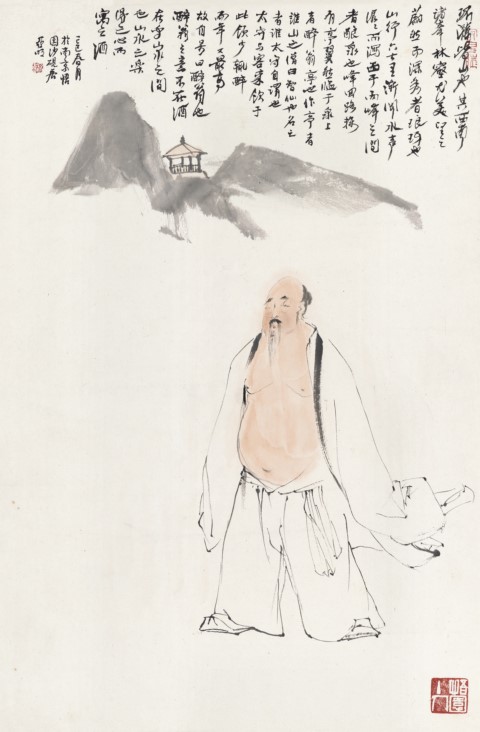 環滁皆山也其西南
諸峯林壑尤美望之
蔚然而深秀者琅琊也
山行六七里漸聞水聲
潺潺而瀉出于兩峰之間
者釀泉也峰回路轉
有亭翼然臨于泉上
者醉翁亭也作亭者
誰山之僧曰智仙也名之
者誰太守自謂也
太守与客來飲于
此飲少輒醉
而年又最高
故自号曰醉翁也
醉翁之意不在酒
在乎山水之間
也山水之樂
得之心而
寓之酒
己巳春月
於南京悟
園沙硯居
亞明